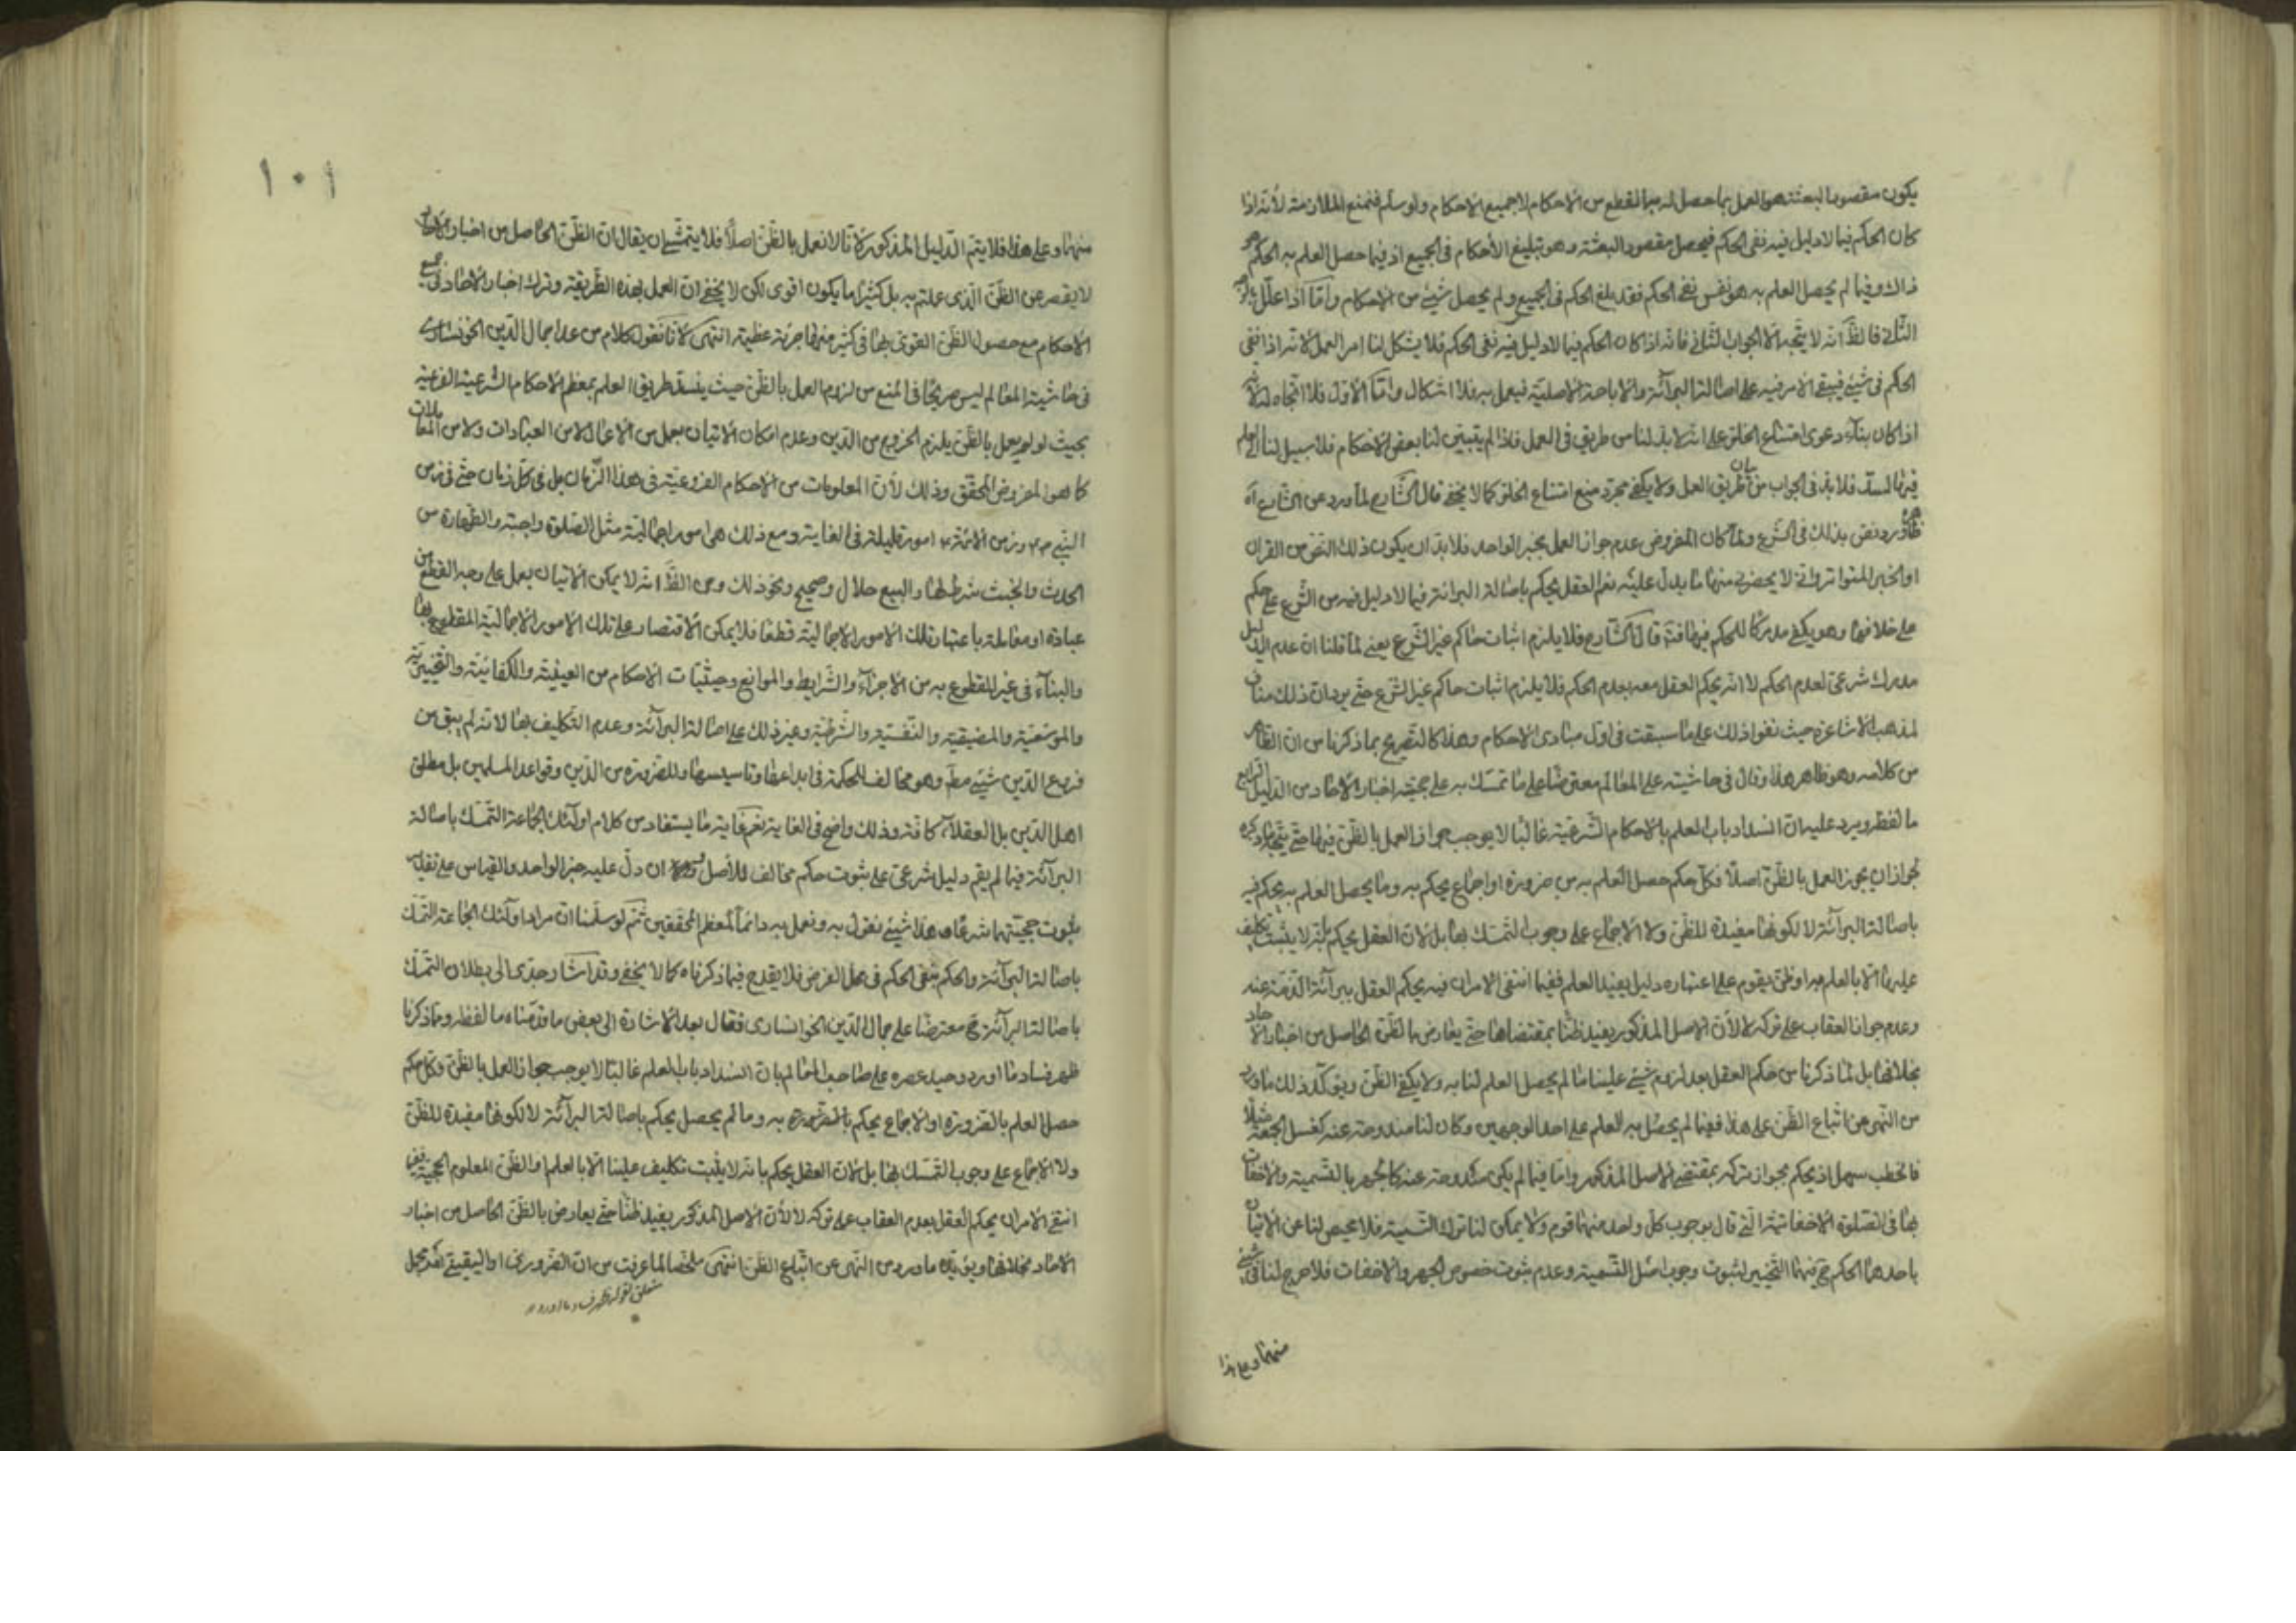 يكون مقصود البعثة هو العمل بما حصل له منها القطع من الاحكام لا جميع الاحكام ولو سلم فنمنع الملازمة لأنه اذا
كان الحكم فيما لا دليل فيه نفى الحكم فيحصل مقصود البعثة وهو تبليغ الأحكام فى الجميع اذ فيما حصل العلم به الحكم هو
ذاك وفيما لم يحصل العلم به هو نفس نفى الحكم فقد بلغ الحكم فى الجميع ولم يحصل شيئ من الاحكام وامّا اذا علّل
الثانى فالظّ انه لا يتّجه الّا الجواب الثانى فانه اذا كان الحكم فيما لا دليل فيه نفى الحكم فلا يشكل لنا امر العمل لانه اذا نفى
الحكم فى شيئ فيبقى الامر فيه على اصالة البرآئة والاباحة الاصلية فيعمل به فلا اشكال وامّا الأول فلا اتّجاه له
اذا كان بناء دعوى امتناع الخلو على انه لا بدّ لنا من طريق فى العمل فاذا لم يتبين لنا بعض الاحكام فلا سبيل لنا الى العلم
فيه فلا بدّ فى الجواب من بيان طريق العمل ولا يكفى مجرّد منع امتناع الخلو كما لا يخفى قال الشّارح لما ورد من الشارع اه
ورد نص بذلك فى الشرع ولمّا كان المفروض عدم جواز العمل بخبر الواحد فلا بدّ ان يكون ذلك النصّ من القران
او الخبر المتواتر وانى لا يحضرنى منهما ما يدل عليه نعم العقل يحكم باصالة البرائة فيما لا دليل فيه من الشرع على حكم
على خلافها وهو يكفى مدركا للحكم فيها فت قال الشّارح فلا يلزم اثبات حاكم غير الشرع يعنى لمّا قلنا ان عدم الدليل
مدرك شرعى لعدم الحكم لا انه يحكم العقل معه بعدم الحكم فلا يلزم اثبات حاكم غير الشرع حتى يرد ان ذلك مناف
لمذهب الاشاعرة حيث نفوا ذلك على ما سبقت فى اول مبادى الاحكام وهذا كالتصريح بما ذكرنا من ان الظاهر
من كلامه وهو ظاهر هذا وقال فى حاشيته على المعالم معترضا على ما تمسك به على حجية اخبار الاحاد من الدليل الرابع
ما لفظه ويرد عليه ان انسداد باب العلم بالاحكام الشرعية غالبا لا يوجب جواز العمل بالظن فيها حتى يتجه ما ذكره
لجواز ان يجوز العمل بالظن اصلا فكل حكم حصل العلم به من ضرورة او اجماع يحكم به وما يحصل العلم به يحكم فيه
باصالة البرآئة لا لكونها مفيدة للظن ولا الاجماع على وجوب التمسك بها بل لان العقل يحكم بانه لا يثبت تكليف
علينا الّا بالعلم به او ظنّ يقوم على اعتباره دليل يفيد العلم ففيما انتفى الامران فيه يحكم العقل ببرآئة الذمّة عنه
وعدم جواز العقاب على تركه لا لأن الاصل المذكور يفيد ظنّا بمقتضاها حتى يعارض بالظن الحاصل من اخبار الاحاد
بخلافها بل لما ذكرنا من حكم العقل بعد لزوم شيئ علينا ما لم يحصل العلم لنا به ولا يكفى الظن ويؤكد ذلك ما ورد
من النهى عن اتباع الظن على هذا ففيما لم يحصل به العلم على احد الوجهين وكان لنا مندوحة عنه كغسل الجمعة مثلا
فالخطب سهل اذ يحكم بجواز تركه بمقتضى الاصل المذكور وامّا فيما لم يكن مندوحة عنه كالجهر بالتسمية والاخفات
بها فى الصلوة الاخفاتية التى قال بوجوب كلّ واحد منهما قوم ولا يمكن لنا ترك التسمية فلا محيص لنا عن الاتيان
باحدهما الحكم ح فيهما التخيير لثبوت وجوب اصل التسمية وعدم ثبوت خصوص الجهر والاخفات فلا حرج لنا فى شيئ
منهما وعلى هذا
١٠١
منهما وعلى هذا فلا يتم الدليل المذكور لانّا لا نعمل بالظن اصلا فلا يتمشى ان يقال ان الظن الحاصل من اخبار الاحاد
لا يقصر من الظن الذى علم به بل كثيرا ما يكون اقوى لكن لا يخفى ان العمل بهذه الطريقة وترك اخبار الاحاد فى جميع
الاحكام مع حصول الظن القوى بها فى كثير منها جرئة عظيمة انتهى لانا نقول كلام من عدا جمال الدين الخونسارى
فى حاشية المعالم ليس صريحا فى المنع من لزوم العمل بالظن حيث ينسد طريق العلم بمعظم الاحكام الشرعية الفرعية
بحيث لو لم يعمل بالظن يلزم الخروج من الدين وعدم امكان الاتيان بعمل من الاعمال لا من العبادات ولا من المعاملات
كما هو المفروض المحقق وذلك لأن المعلومات من الاحكام الفروعية فى هذا الزمان بل فى كل زمان حتى فى زمن
النبى ص وزمن الائمة ع امور قليلة فى الغاية ومع ذلك هى امور اجمالية مثل الصلوة واجبة والطهارة من
الحدث والخبث شرط لها والبيع حلال وصحيح ونحو ذلك ومن الظّ انه لا يمكن الاتيان بعمل على وجه القطع من
عبادة او معاملة باعتبار تلك الامور الاجمالية قطعا فلا يمكن الاقتصار على تلك الامور الاجمالية المقطوع بها
والبناء فى غير المقطوع به من الاجزاء والشرايط والموانع وحيثيات الاحكام من العينية والكفائية والتخييرية
والموسعية والمضيقية والنفسية والشرطية وغير ذلك على اصالة البرآئة وعدم التكليف بها لانه لم يبق من
فروع الدين شيئ مط وهو مخالف للحكمة فى ابداعها وتاسيسها وللضرورة من الدين وقواعد المسلمين بل مطلق
اهل الدين بل العقلاء كافة وذلك واضح فى الغاية نعم غاية ما يستفاد من كلام اولئك الجماعة التمسك باصالة
البرآئة فيما لم يقم دليل شرعى على ثبوت حكم مخالف للأصل ان دلّ عليه خبر الواحد والقياس على تقدير
ثبوت حجيتهما شرعا وهذا شيئ نقول به ونعمل به دائما لمعظم المحققين ثم لو سلمنا ان مراد اولئك الجماعة التمسك
باصالة البرآئة والحكم بنفى الحكم فى محل الفرض فلا يقدح فيما ذكرناه كما لا يخفى وقد اشار جدّى الى بطلان التمسك
باصالة البرآئة ح معترضا على جمال الدين الخوانسارى فقال بعد الاشارة الى بعض ما قدمناه ما لفظه وما ذكرنا
ظهر فساد ما اورد وحيد عصره على صاحب المعالم بان انسداد باب العلم غالبا لا يوجب جواز العمل بالظن وكل حكم
حصل العلم بالضرورة او الاجماع يحكم به وما لم يحصل يحكم باصالة البرآئة لا لكونها مفيدة للظن
ولا الاجماع على وجوب التمسك بها بل لان العقل يحكم بانه لا يثبت تكليف علينا الّا بالعلم او الظن المعلوم الحجية ففيما
انتفى الامران يحكم العقل بعدم العقاب على تركه لا لأن الاصل المذكور يفيد ظنا حتى يعارض بالظن الحاصل من اخبار
الاحاد بخلافها ويؤيده ما ورد من النهى عن اتباع الظن انتهى ملخصا لما عرفت من ان الضرورى او اليقينى امر مجمل
متعلق بقوله ظهر فساد ما اورد